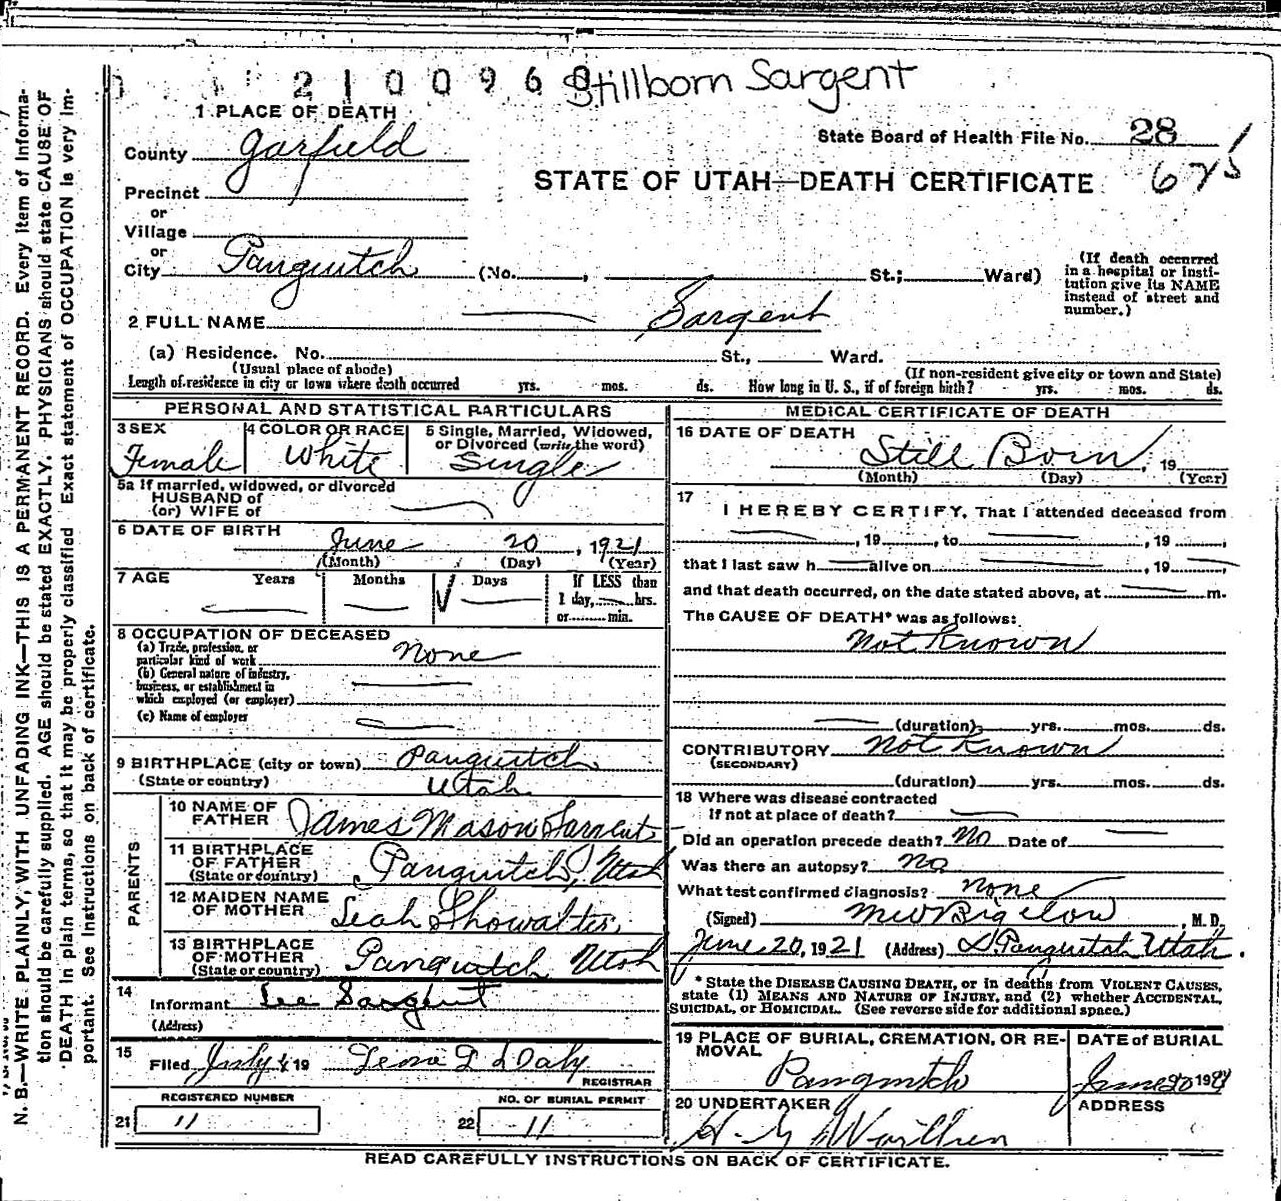 2100960 Stillborn Sargent
1 PLACE OF DEATH
State Board of Health File No. 28
County Garfield
STATE OF UTAH—DEATH CERTIFICATE
675
Precinct
or
Village
or
City Panguitch (No. , St.; Ward)
(If death occurred in a hospital or institution give its NAME instead of street and number.)
2 FULL NAME Sargent
(a) Residence. No. St., Ward.
(Usual place of abode) (If non-resident give city or town and State)
Length of residence in city or town where death occurred yrs. mos. ds. How long in U. S., if of foreign birth? yrs. mos. ds.
PERSONAL AND STATISTICAL PARTICULARS
3 SEX Female
4 COLOR OR RACE White
5 Single, Married, Widowed, or Divorced (write the word) Single
5a If married, widowed, or divorced
HUSBAND of
(or) WIFE of
6 DATE OF BIRTH
June 20, 1921
(Month) (Day) (Year)
7 AGE Years Months Days If LESS than
1 day, hrs.
or min.
8 OCCUPATION OF DECEASED
(a) Trade, profession, or
particular kind of work None
(b) General nature of industry,
business, or establishment in
which employed (or employer)
(c) Name of employer
9 BIRTHPLACE (city or town) Panguitch
(State or country) Utah
PARENTS
10 NAME OF FATHER James Mason Sargent
11 BIRTHPLACE OF FATHER (State or country) Panguitch, Utah
12 MAIDEN NAME OF MOTHER Leah Showalter
13 BIRTHPLACE OF MOTHER (State or country) Panguitch Utah
14
Informant Lee Sargent
(Address)
15
Filed July 19
REGISTRAR
REGISTERED NUMBER
21 11
NO. OF BURIAL PERMIT
22 11
MEDICAL CERTIFICATE OF DEATH
16 DATE OF DEATH
Still Born, 19
(Month) (Day) (Year)
17
I HEREBY CERTIFY, That I attended deceased from
, 19 , to , 19 ,
that I last saw h alive on , 19 ,
and that death occurred, on the date stated above, at m.
The CAUSE OF DEATH* was as follows:
Not Known
(duration) yrs. mos. ds.
CONTRIBUTORY Not Known
(SECONDARY)
(duration) yrs. mos. ds.
18 Where was disease contracted
If not at place of death?
Did an operation precede death? No Date of
Was there an autopsy? No
What test confirmed diagnosis? None
(Signed) M W Bigelow M. D.
June 20, 1921 (Address) Panguitch Utah.
* State the DISEASE CAUSING DEATH, or in deaths from VIOLENT CAUSES,
state (1) MEANS AND NATURE OF INJURY, and (2) whether ACCIDENTAL,
SUICIDAL, or HOMICIDAL. (See reverse side for additional space.)
19 PLACE OF BURIAL, CREMATION, OR REMOVAL
Panguitch
DATE of BURIAL
June 20 1921
20 UNDERTAKER
ADDRESS
READ CAREFULLY INSTRUCTIONS ON BACK OF CERTIFICATE.
N. B.—WRITE PLAINLY, WITH UNFADING INK—THIS IS A PERMANENT RECORD. Every item of Informa-
tion should be carefully supplied. AGE should be stated EXACTLY. PHYSICIANS should state CAUSE OF
DEATH in plain terms, so that it may be properly classified. Exact statement of OCCUPATION is very im-
portant. See Instructions on back of certificate.